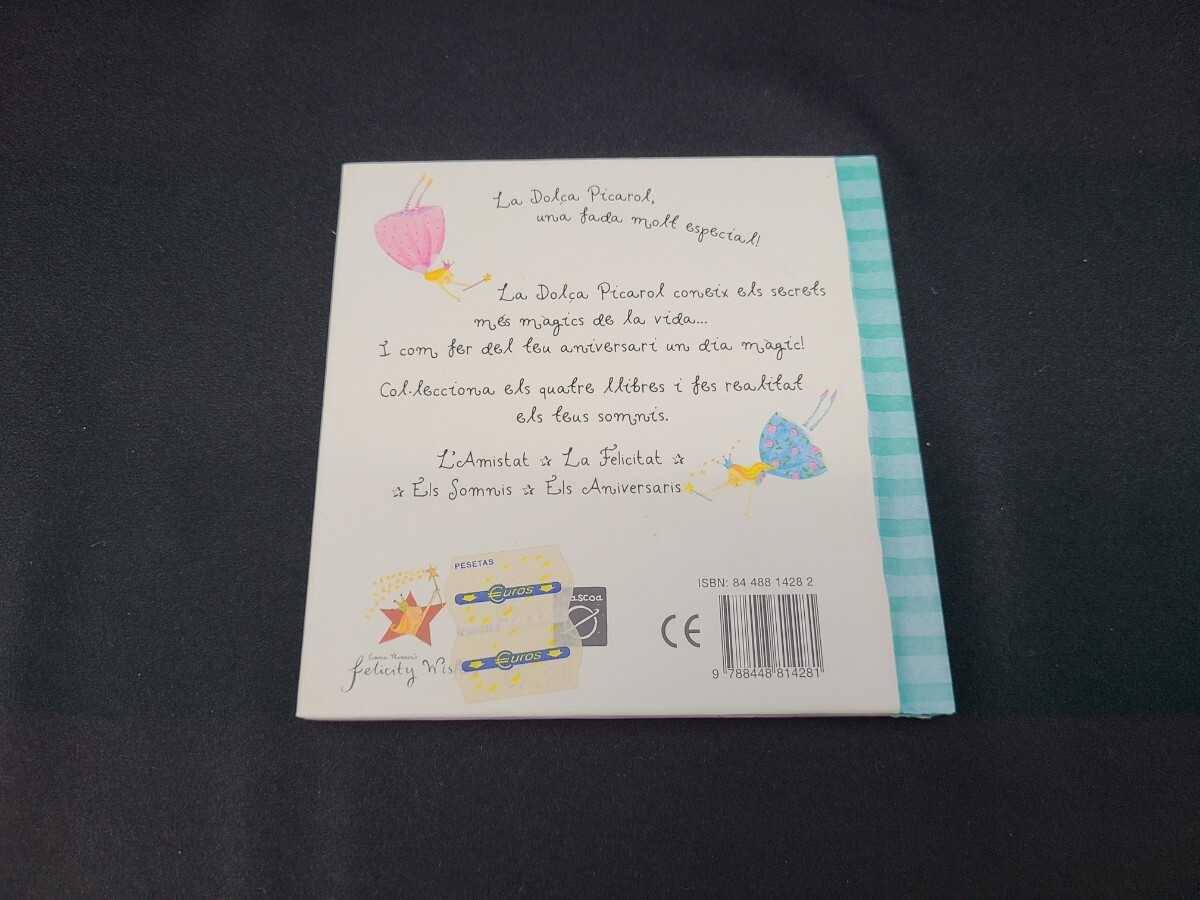 La Dolça Picarol,
una fada molt especial!
La Dolça Picarol coneix els secrets
més màgics de la vida...
I com fer del teu aniversari un dia màgic!
Col·lecciona els quatre llibres i fes realitat
els teus somnis.
L'Amistat ☆ La Felicitat ☆
☆ Els Somnis ☆ Els Aniversaris
PESETAS
€uros
€uros
ascoa
Emma Thomson's
felicity Wis
CE
ISBN: 84 488 1428 2
9 788448 814281